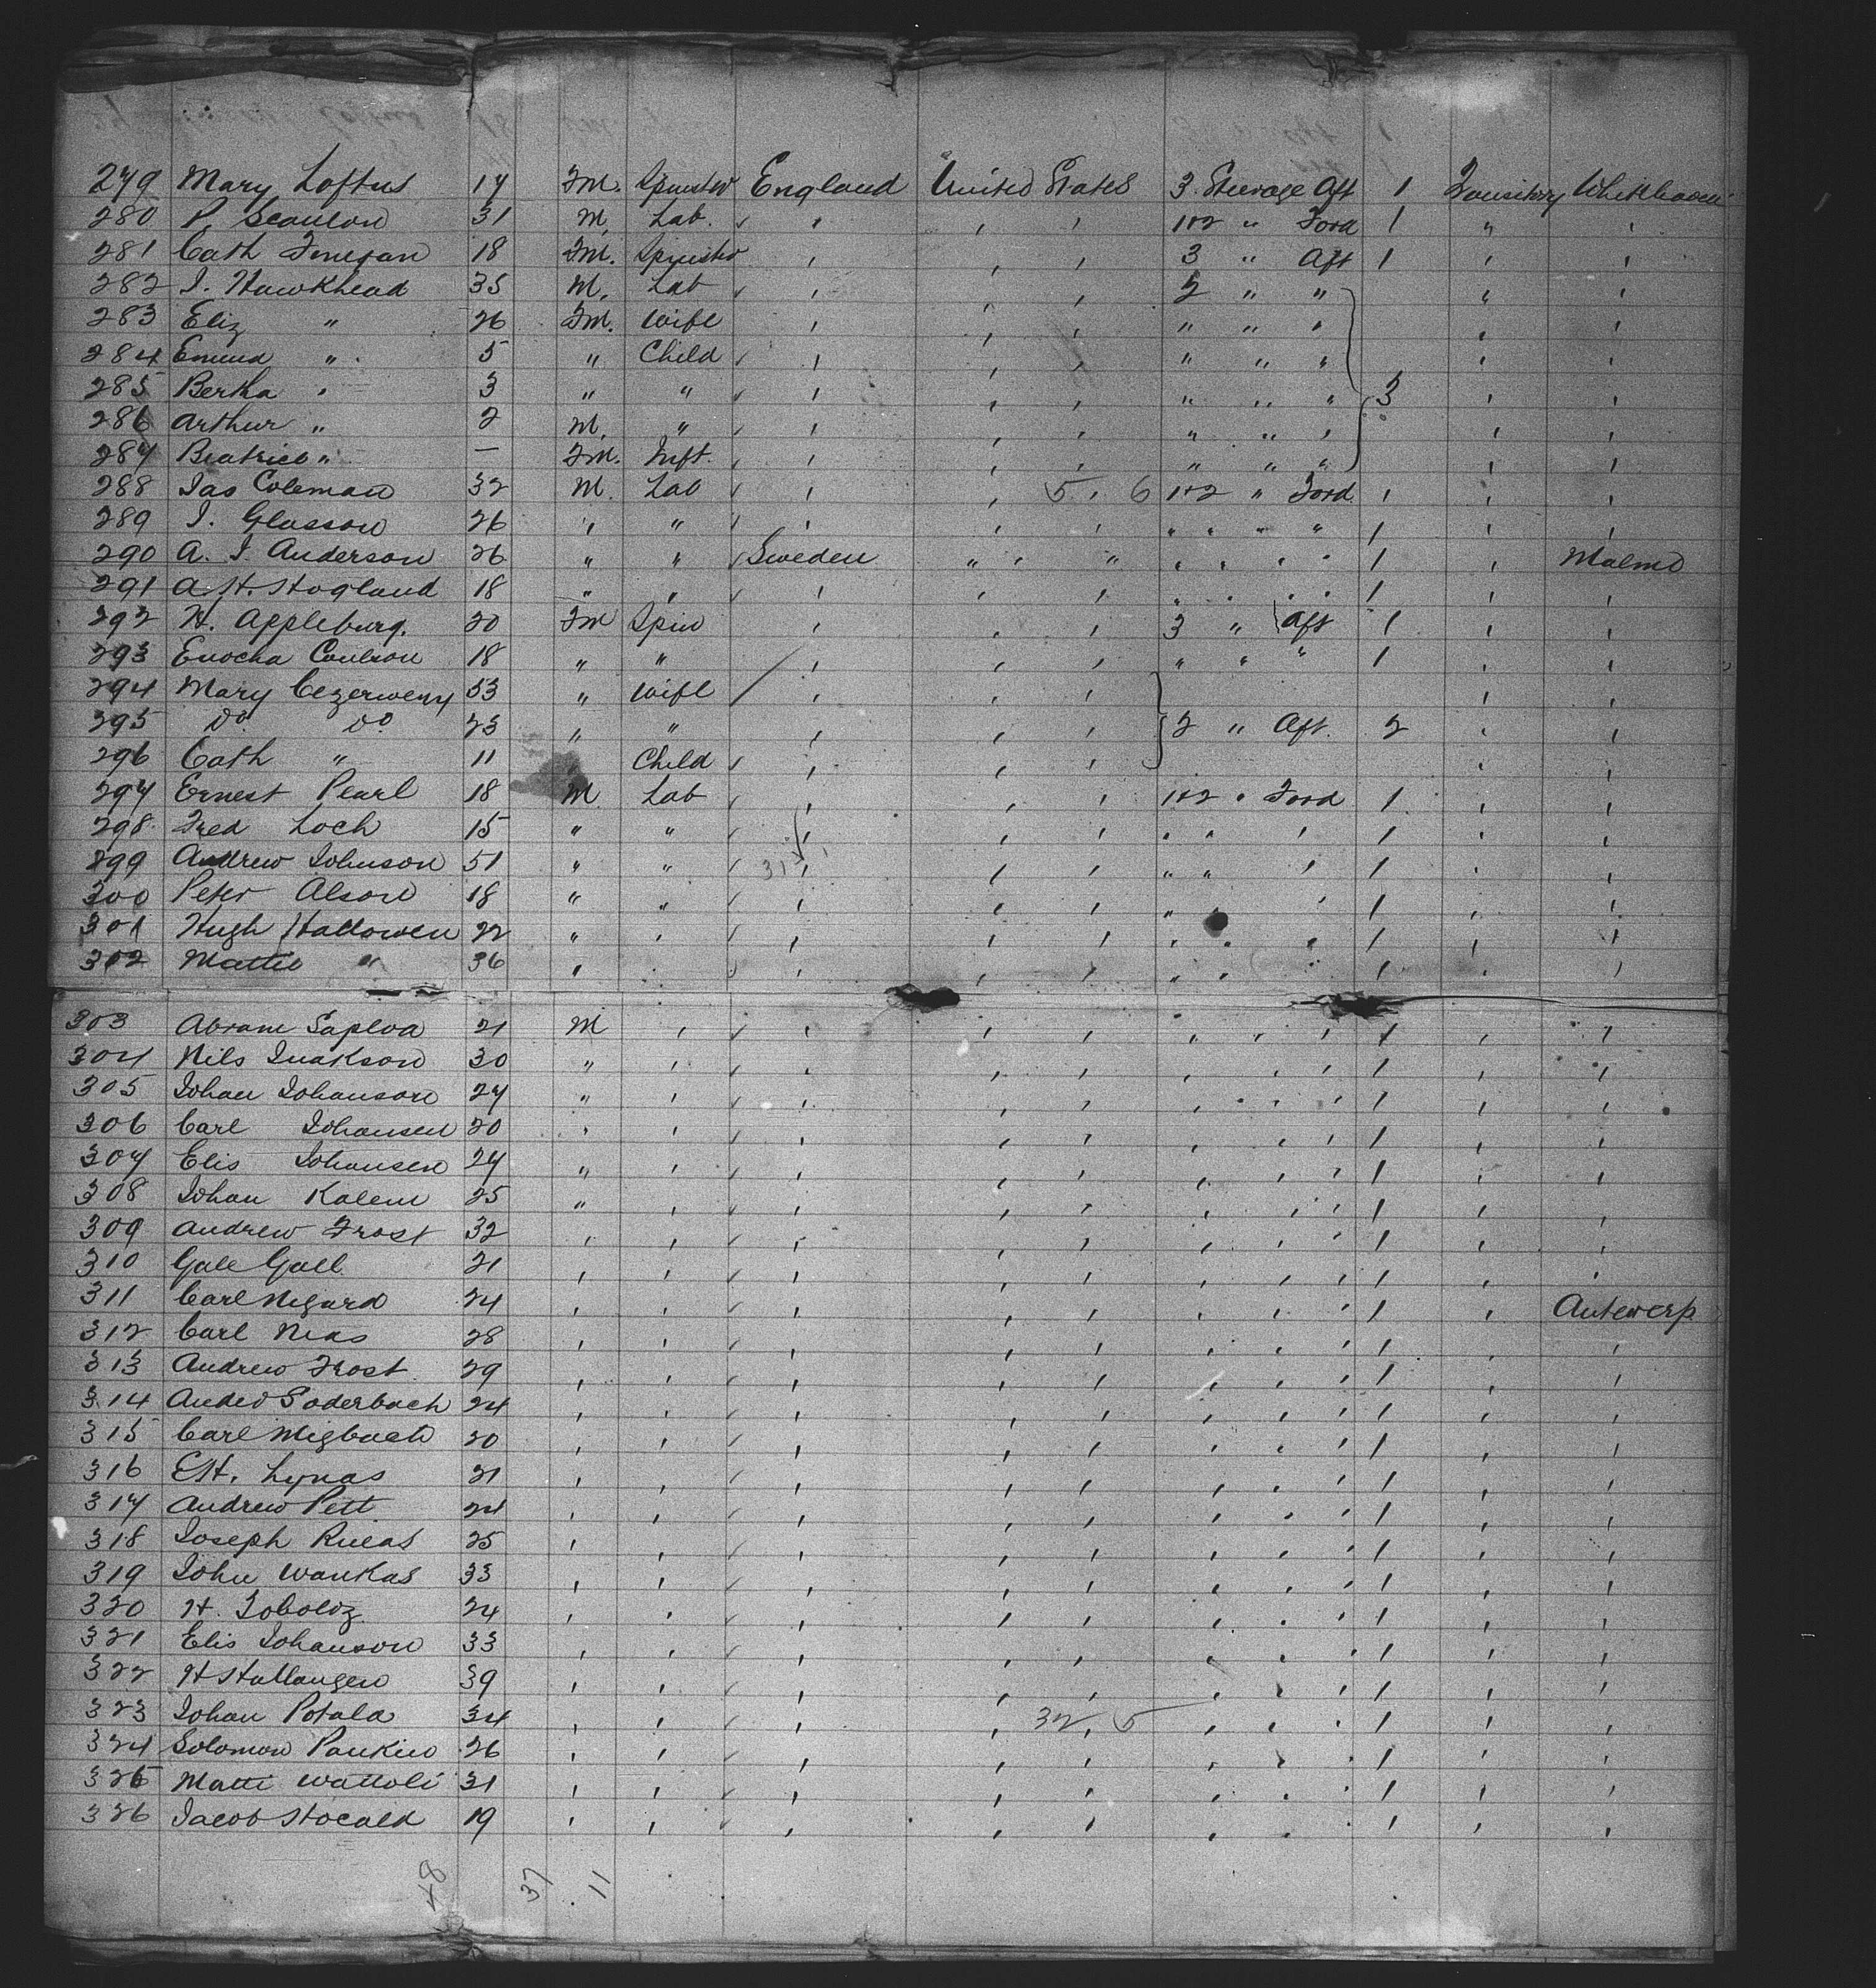 279 Mary Loftus 17 Fm. Spinster England United States 3 Steerage Aft 1 Transitory Whitehaven
280 P. Scanlon 31 M. Lab. " " " 1+2 " Ford 1 " "
281 Cath Finegan 18 Fm. Spinster " " " 3 " Aft 1 " "
282 J. Hawkhead 35 M. Lab " " " 2 " " " "
283 Eliz " 26 Fm. Wife " " " " " " " "
284 Emma " 5 " Child " " " " " " " "
285 Bertha " 3 " " " " " " " " 3 " "
286 Arthur " 2 M. " " " " " " " " "
287 Beatrice " — Fm. Inft. " " " " " " " "
288 Jas Coleman 32 M. Lab " " 5 " 6 1+2 " Ford 1 " "
289 J. Glasson 26 " " " " " " " " " 1 " "
290 A. J. Anderson 26 " " Sweden " " " " " " " 1 " Malmo
291 A. H. Hogland 18 " " " " " " " " " 1 " "
292 H. Appleburg. 20 Fm Spin " " " 3 " Aft 1 " "
293 Enocha Coulson 18 " " " " " " " " 1 " "
294 Mary Cezerweny 53 " Wife " " " " "
295 Do Do 23 " " " " " 2 " Aft. 2 " "
296 Cath " 11 Child " " " " "
297 Ernest Pearl 18 M Lab " " " 1+2 " Ford 1 " "
298 Fred Loch 15 " " " " " " " " 1 " "
299 Andrew Johnson 51 " " 31 " " " " " " 1 " "
300 Peter Alson 18 " " " " " " " 1 " "
301 Hugh Hallowen 22 " " " " " " " " 1 " "
302 Mattie " 36 " " " " " " " 1 " "
303 Abram Saploa 21 M " " " " " " " 1 " "
304 Nils Isakson 30 " " " " " " " " 1 " "
305 Johan Johanson 27 " " " " " " " " 1 " "
306 Carl Johansen 20 " " " " " " " " 1 " "
307 Elis Johansen 27 " " " " " " " " 1 " "
308 Johan Kalem 25 " " " " " " " " 1 " "
309 Andrew Frost 32 " " " " " " " " 1 " "
310 Gale Gall 21 " " " " " " " " 1 " "
311 Carl Nigard 24 " " " " " " " " 1 " Antwerp
312 Carl Nias 28 " " " " " " " " 1 " "
313 Andrew Frost 29 " " " " " " " " 1 " "
314 Anded Soderbach 24 " " " " " " " " 1 " "
315 Carl 20 " " " " " " " " 1 " "
316 E.H. Lynas 21 " " " " " " " " 1 " "
317 Andrew Pett 24 " " " " " " " " 1 " "
318 Joseph 25 " " " " " " " " 1 " "
319 John Wankas 33 " " " " " " " " 1 " "
320 H. Toboldz 24 " " " " " " " " 1 " "
321 Elis Johanson 33 " " " " " " " " 1 " "
322 H Hallangen 39 " " " " " " " " 1 " "
323 Johan Potala 34 " " " " 32 " 5 " " " 1 " "
324 Solomon Pankin 26 " " " " " " " " 1 " "
325 Matti Wattoli 31 " " " " " " " " 1 " "
326 Jacob Hocald 19 " " " " " " " 1 " "
48 37 11